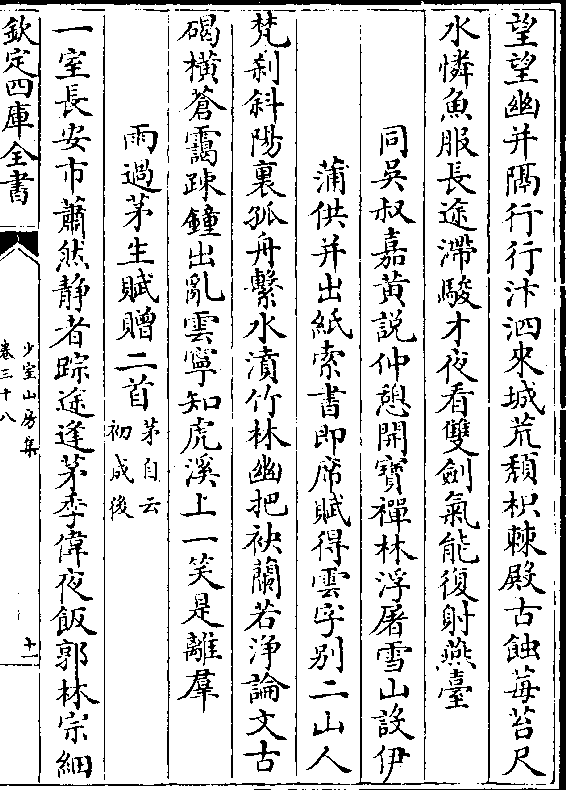 望望幽并隔行行汴泗來城荒頹枳棘殿古蝕莓苔尺
水憐魚服長途滯駿才夜看雙劍氣能復射燕臺
同吳叔嘉黃説仲憩開寶禪林浮屠雪山設伊
蒲供并出紙索書即席賦得雲字别二山人
梵刹斜陽裏孤舟繫水濆竹林幽把袂蘭若浄論文古
碣横蒼靄踈鐘出亂雲寧知虎溪上一笑是離羣
雨過茅生賦贈二首茅自云
初成後
一室長安市蕭然静者踪途逢茅季偉夜飯郭林宗細
欽定四庫全書
少室山房集
卷三十八
十一